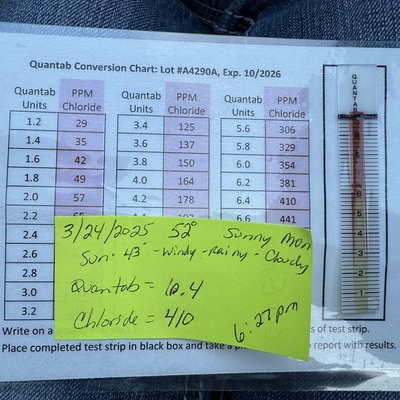 Quantab Conversion Chart: Lot #A4290A, Exp. 10/2026
Quantab Units PPM Chloride Quantab Units PPM Chloride Quantab Units PPM Chloride
1.2 29 3.4 125 5.6 306
1.4 35 3.6 137 5.8 329
1.6 42 3.8 150 6.0 354
1.8 49 4.0 164 6.2 381
2.0 57 4.2 178 6.4 410
2.2 6.6 441
2.4
2.6
2.8
3.0
3.2
3/24/2025 52° Sunny Mon
Sun. 43° - Windy - Rainy - Cloudy
Quantab = 6.4
Chloride = 410
6:27pm
Write on a s of test strip.
Place completed test strip in black box and take a report with results.
QUANTAB
6
5
4
3
2
1